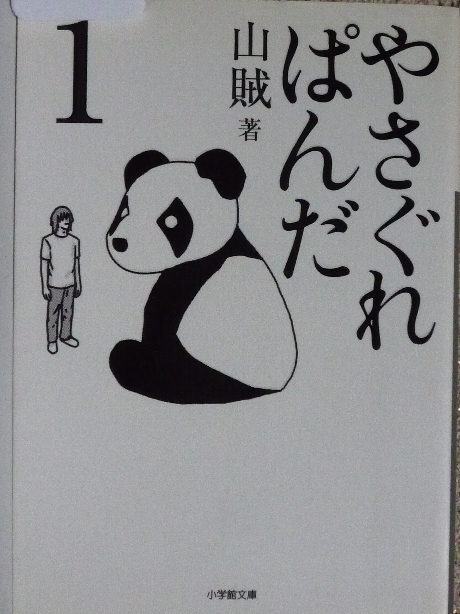 やさぐれ
ぱんだ
山賊 著
1
小学館文庫